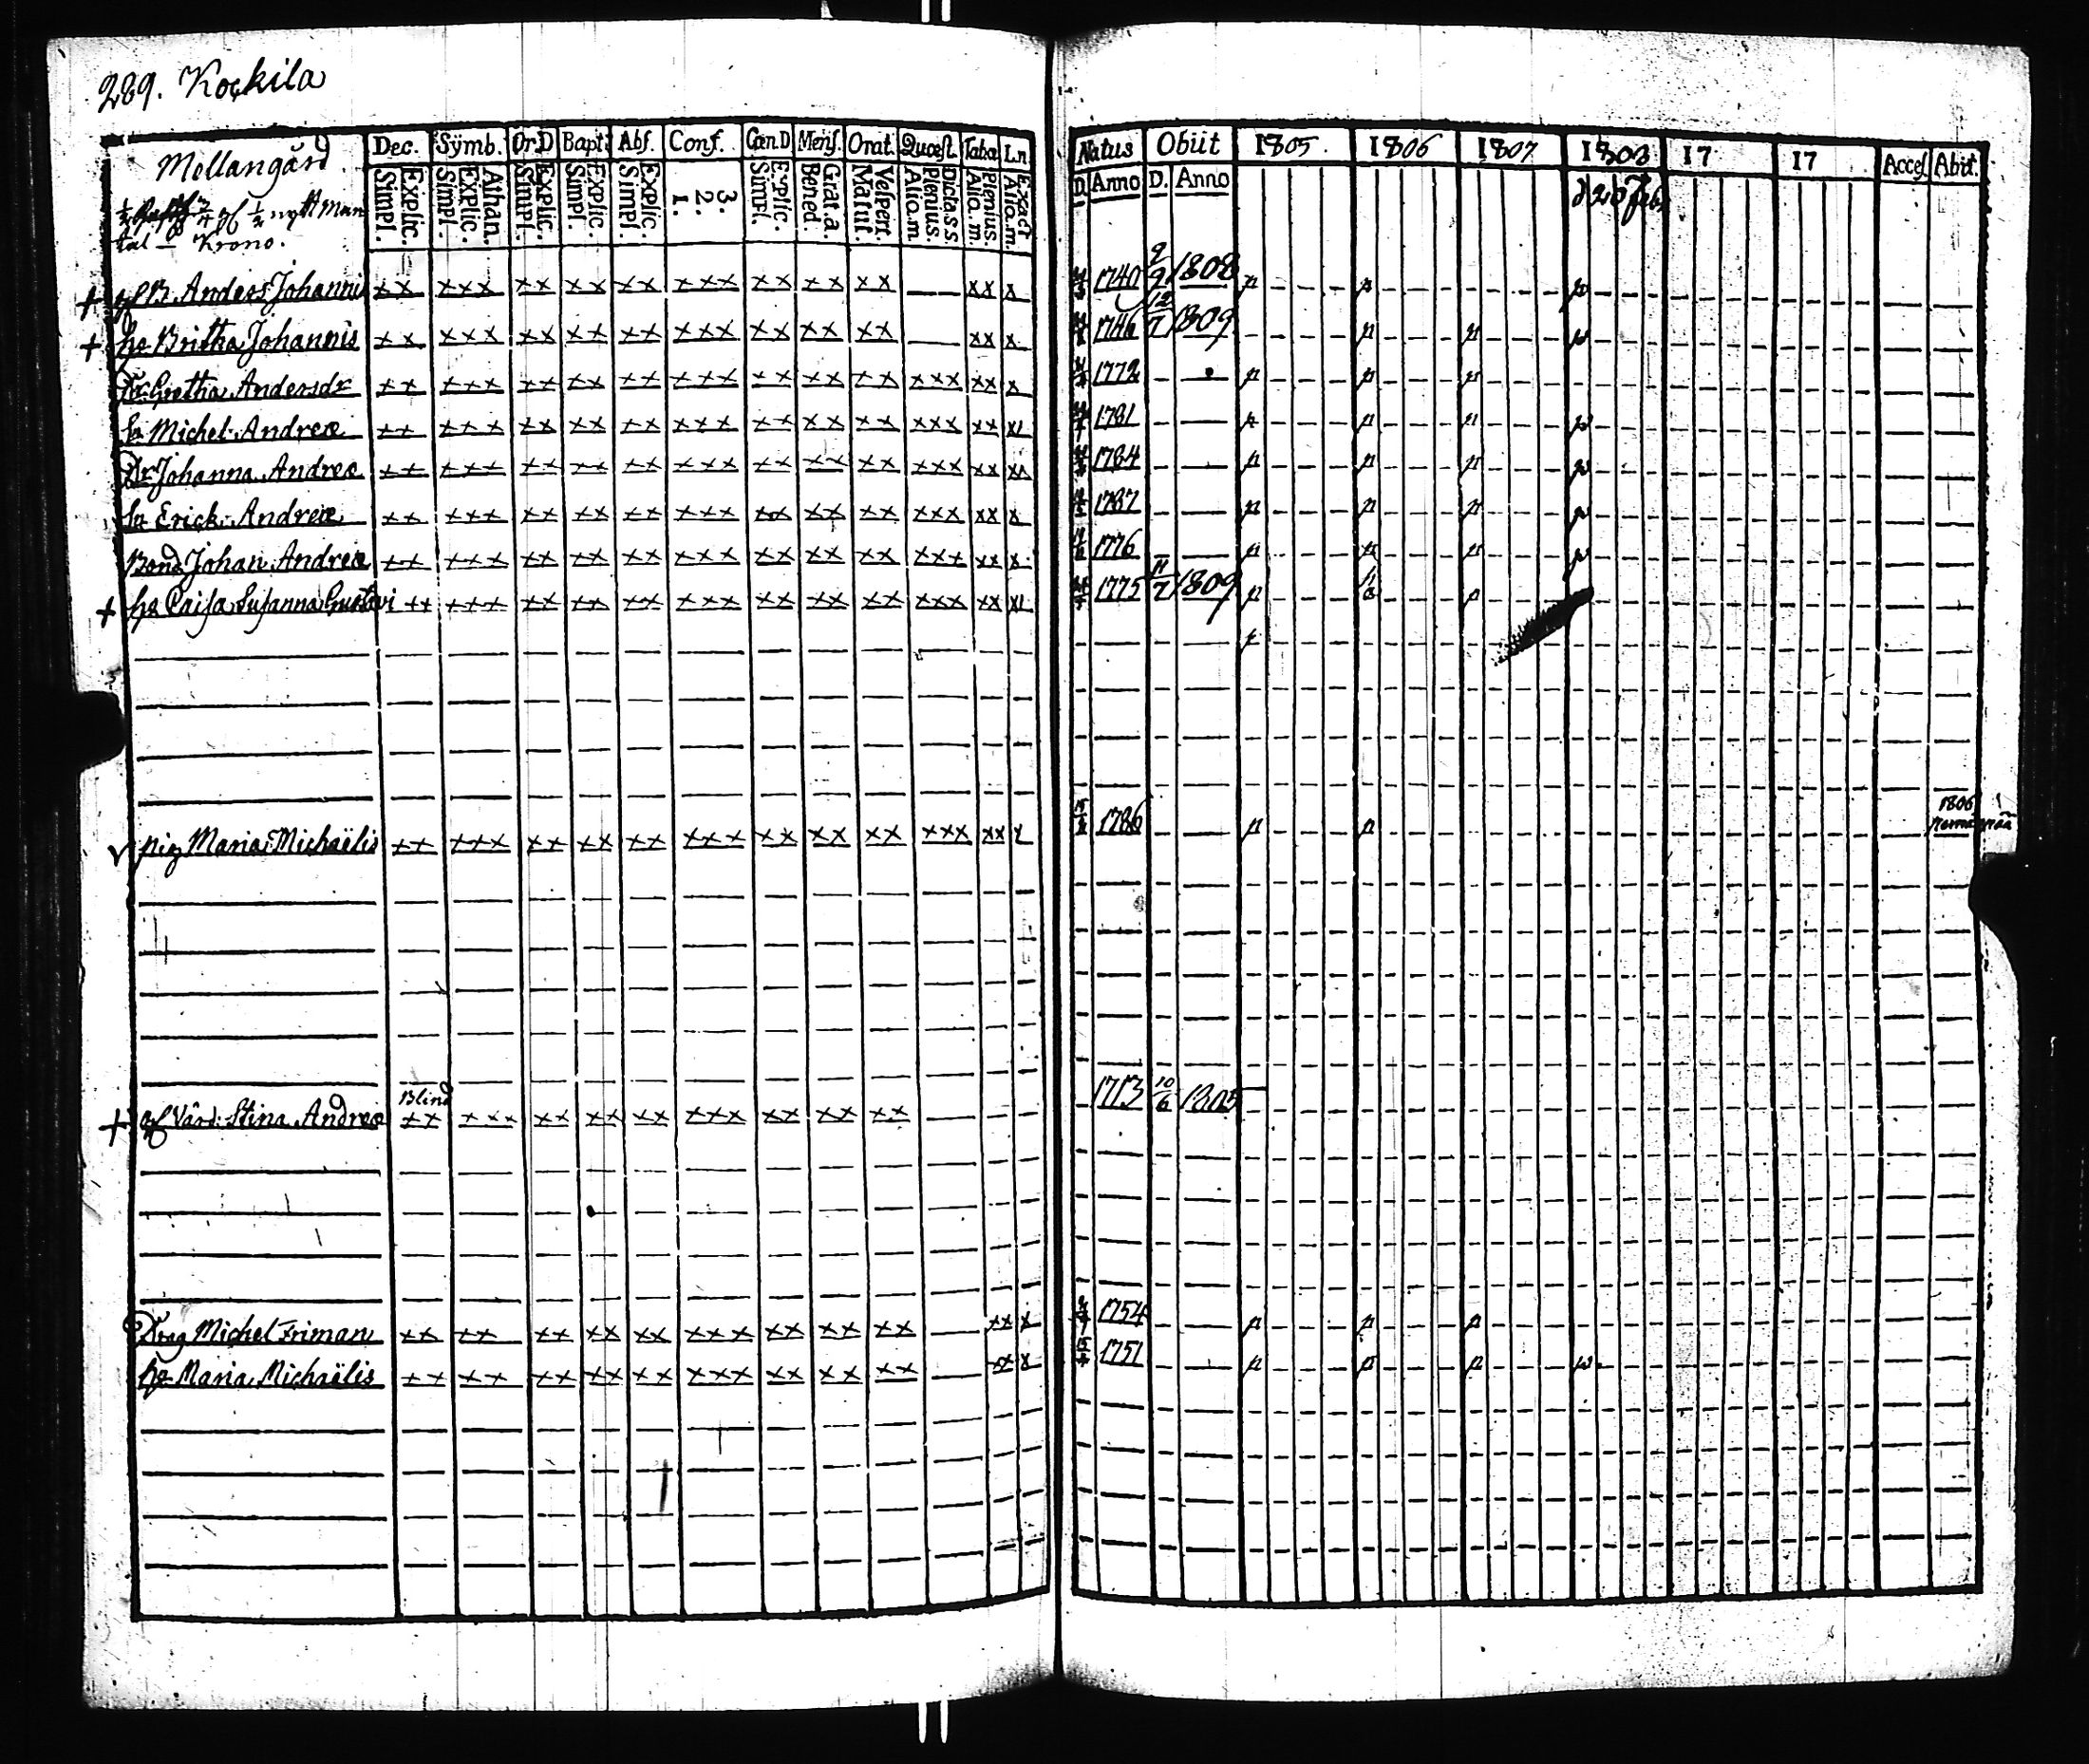 289. Kockila
Mellangård Dec. Sÿmb. Or.D Bapt. Abſ. Conf. Cœn.D Menſ. Orat. Quœſt. Taba Ln Natus Obiit 1805. 1806 1807 1808 17 17 Acceſ. Abiit.
Simpl. Explic. Simpl. Explic. Athan. Simpl. Explic. Simpl. Explic. Simpl. Explic. 1. 2. 3. Simpl. Explic. Bened. Grat.a. Matut. Veſpert. Alio.m Plenius. Dicta.s.s. Alio.m. Plenius. Alio.m. Exact D. Anno D. Anno
1/2 nytt Man
tal Krono.
+ Anders Johannis xx xxx xx xx xx xxx xx xx xx xx x 1740 1808
+ hu Britha Johannis xx xxx xx xx xx xxx xx xx xx xx x 1746 12/7 1809
Dr Gretha Andersdr xx xxx xx xx xx xxx xx xx xx xxx xx x 1772
Sn Michel Andreæ xx xxx xx xx xx xxx xx xx xx xxx xx 1781
Dr Johanna Andreæ xx xxx xx xx xx xxx xx xx xx xxx xx 1784
Sn Erick Andreæ xx xxx xx xx xx xxx xx xx xx xxx xx x 1787
Bond Johan Andreæ xx xxx xx xx xx xxx xx xx xx xxx xx x 1776
+ hu Caiſa Suſanna Gustavi xx xxx xx xx xx xxx xx xx xx xxx xx 1775 11/7 1809
1806
pig Maria Michaëlis xx xxx xx xx xx xxx xx xx xx xxx xx x 1786
Blind
+ Stina Andreæ xx xxx xx xx xx xxx xx xx xx 1713 10/6 1805
Dreg Michel Friman xx xx xx xx xx xxx xx xx xx xx x 1754
hu Maria Michaëlis xx xx xx xx xx xxx xx xx xx xx x 1751